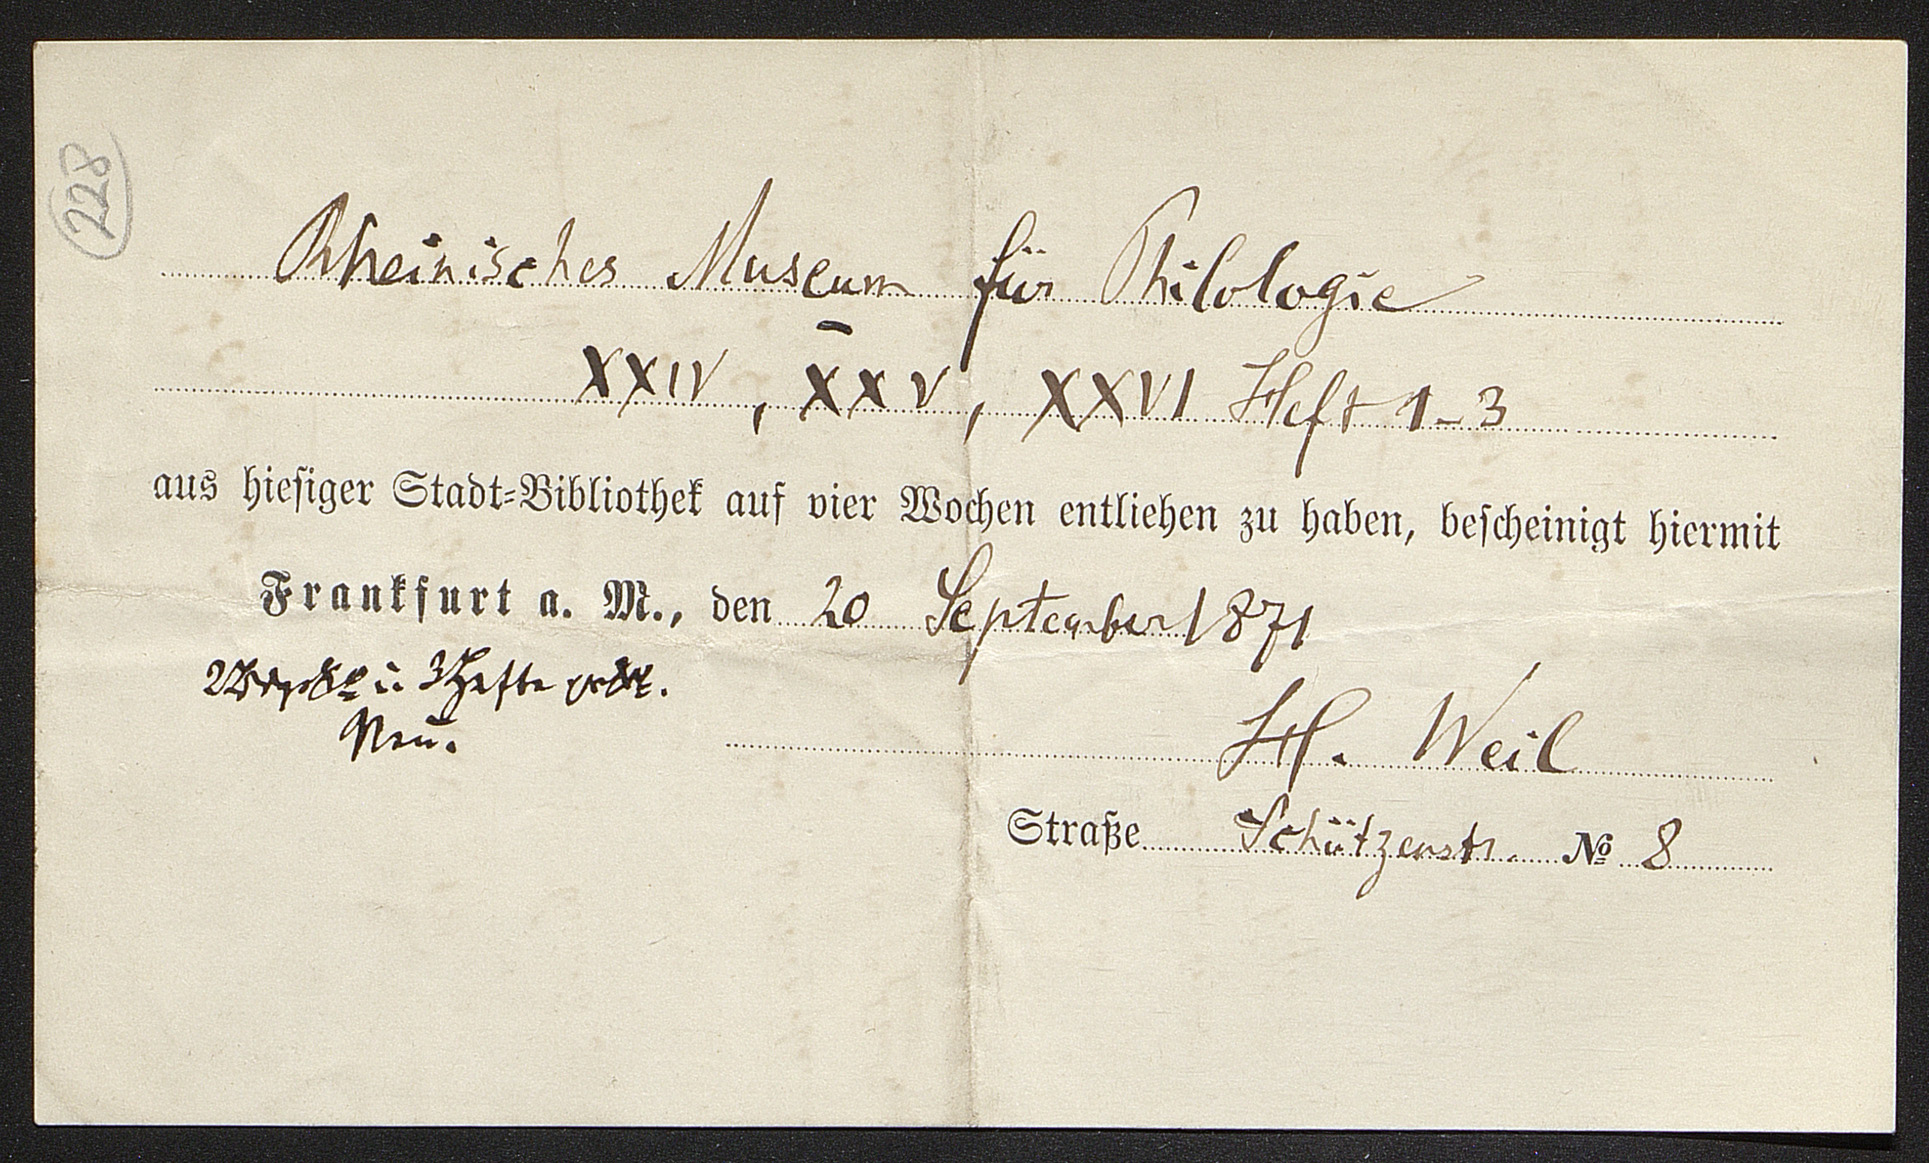 228
Rheinisches Museum für Philologie
XXIV, XXV, XXVI Heft 1-3
aus hiesiger Stadt-Bibliothek auf vier Wochen entliehen zu haben, bescheinigt hiermit
Frankfurt a. M., den 20 September 1871
2 u. 3 Hefte
H. Weil
Straße Schützenstr. No 8